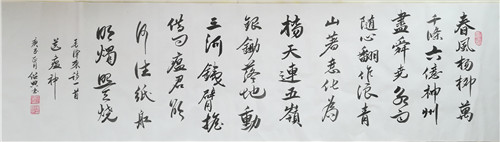 春風楊柳萬
千條六億神州
盡舜堯紅雨
隨心翻作浪青
山著意化為
橋天連五嶺
銀鋤落地動
三河鐵臂搖
借問瘟君欲
何往紙船
明燭照天燒
毛澤東詩一首
送瘟神
庚子